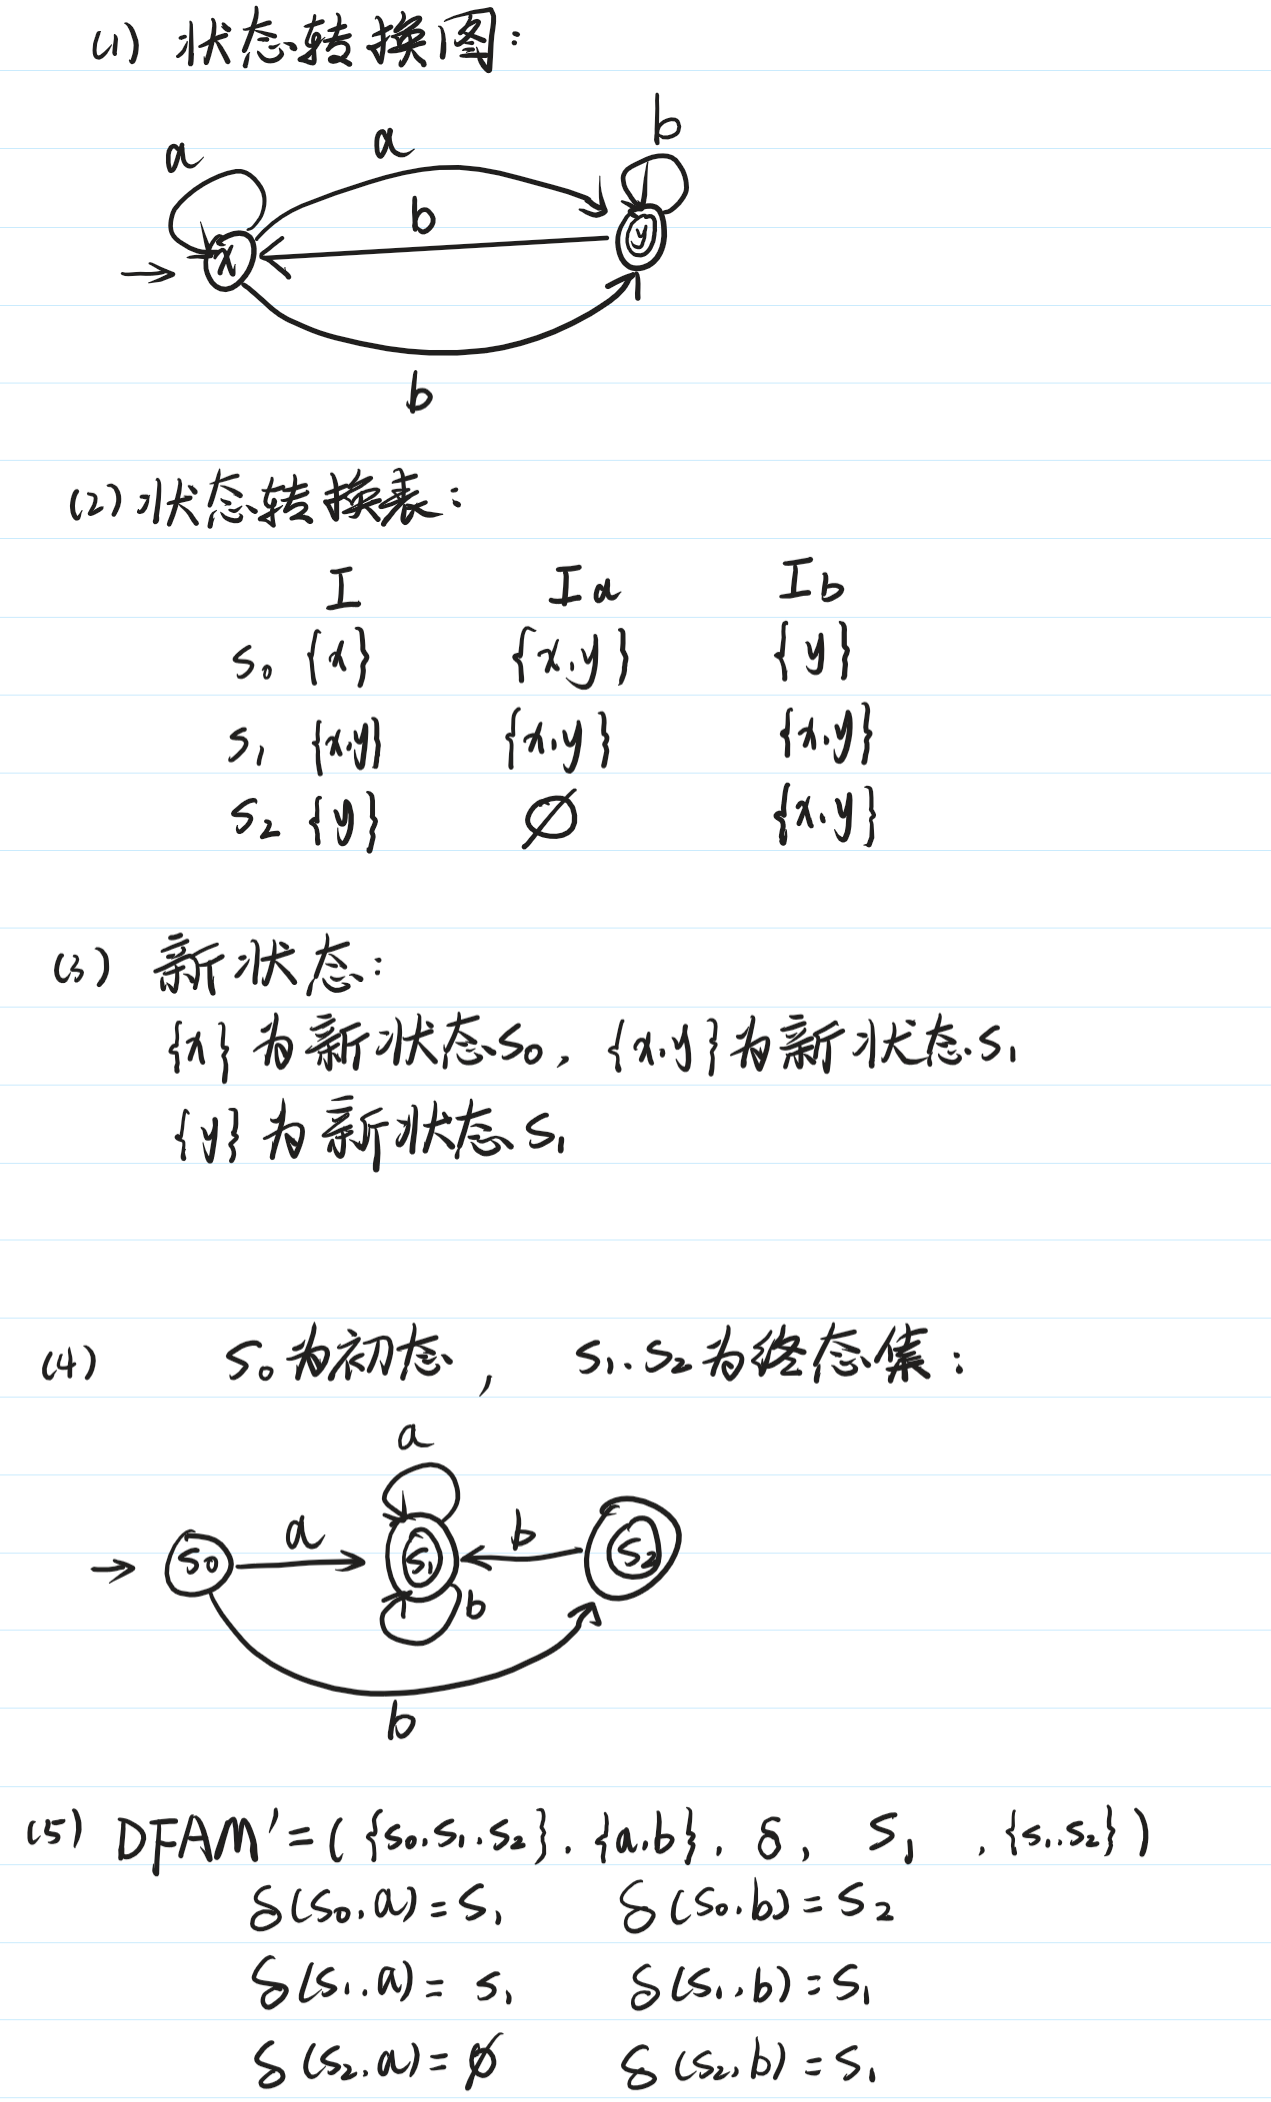 (1) 状态转换图:
b
a a
b
x y
b
(2) 状态转换表:
I Ia Ib
S0 {x} {x.y} {y}
S1 {x.y} {x.y} {x.y}
S2 {y} ∅ {x.y}
(3) 新状态:
{x} 为新状态S0, {x.y}为新状态.S1
{y} 为新状态S1
(4) S0为初态, S1.S2为终态集:
a
a b
S0 S1 S2
b
b
(5) DFAM'=( {S0.S1.S2}.{a.b}. δ, S1 ,{S1.S2})
δ(S0.a)=S1 δ(S0.b)=S2
δ(S1.a)= S1 δ(S1,b)=S1
δ(S2.a)=∅ δ(S2,b)=S1